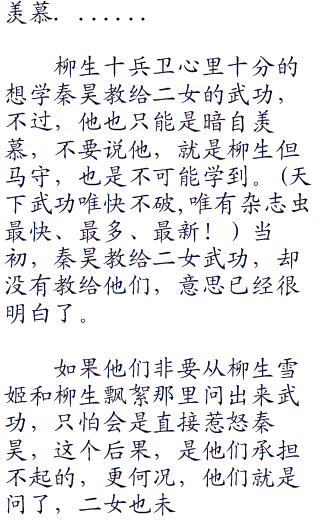 羡慕. ......
柳生十兵卫心里十分的
想学秦昊教给二女的武功，
不过，他也只能是暗自羡
慕，不要说他，就是柳生但
马守，也是不可能学到。(天
下武功唯快不破,唯有杂志虫
最快、最多、最新！ ) 当
初，秦昊教给二女武功，却
没有教给他们，意思已经很
明白了。
如果他们非要从柳生雪
姬和柳生飘絮那里问出来武
功，只怕会是直接惹怒秦
昊，这个后果，是他们承担
不起的，更何况，他们就是
问了，二女也未